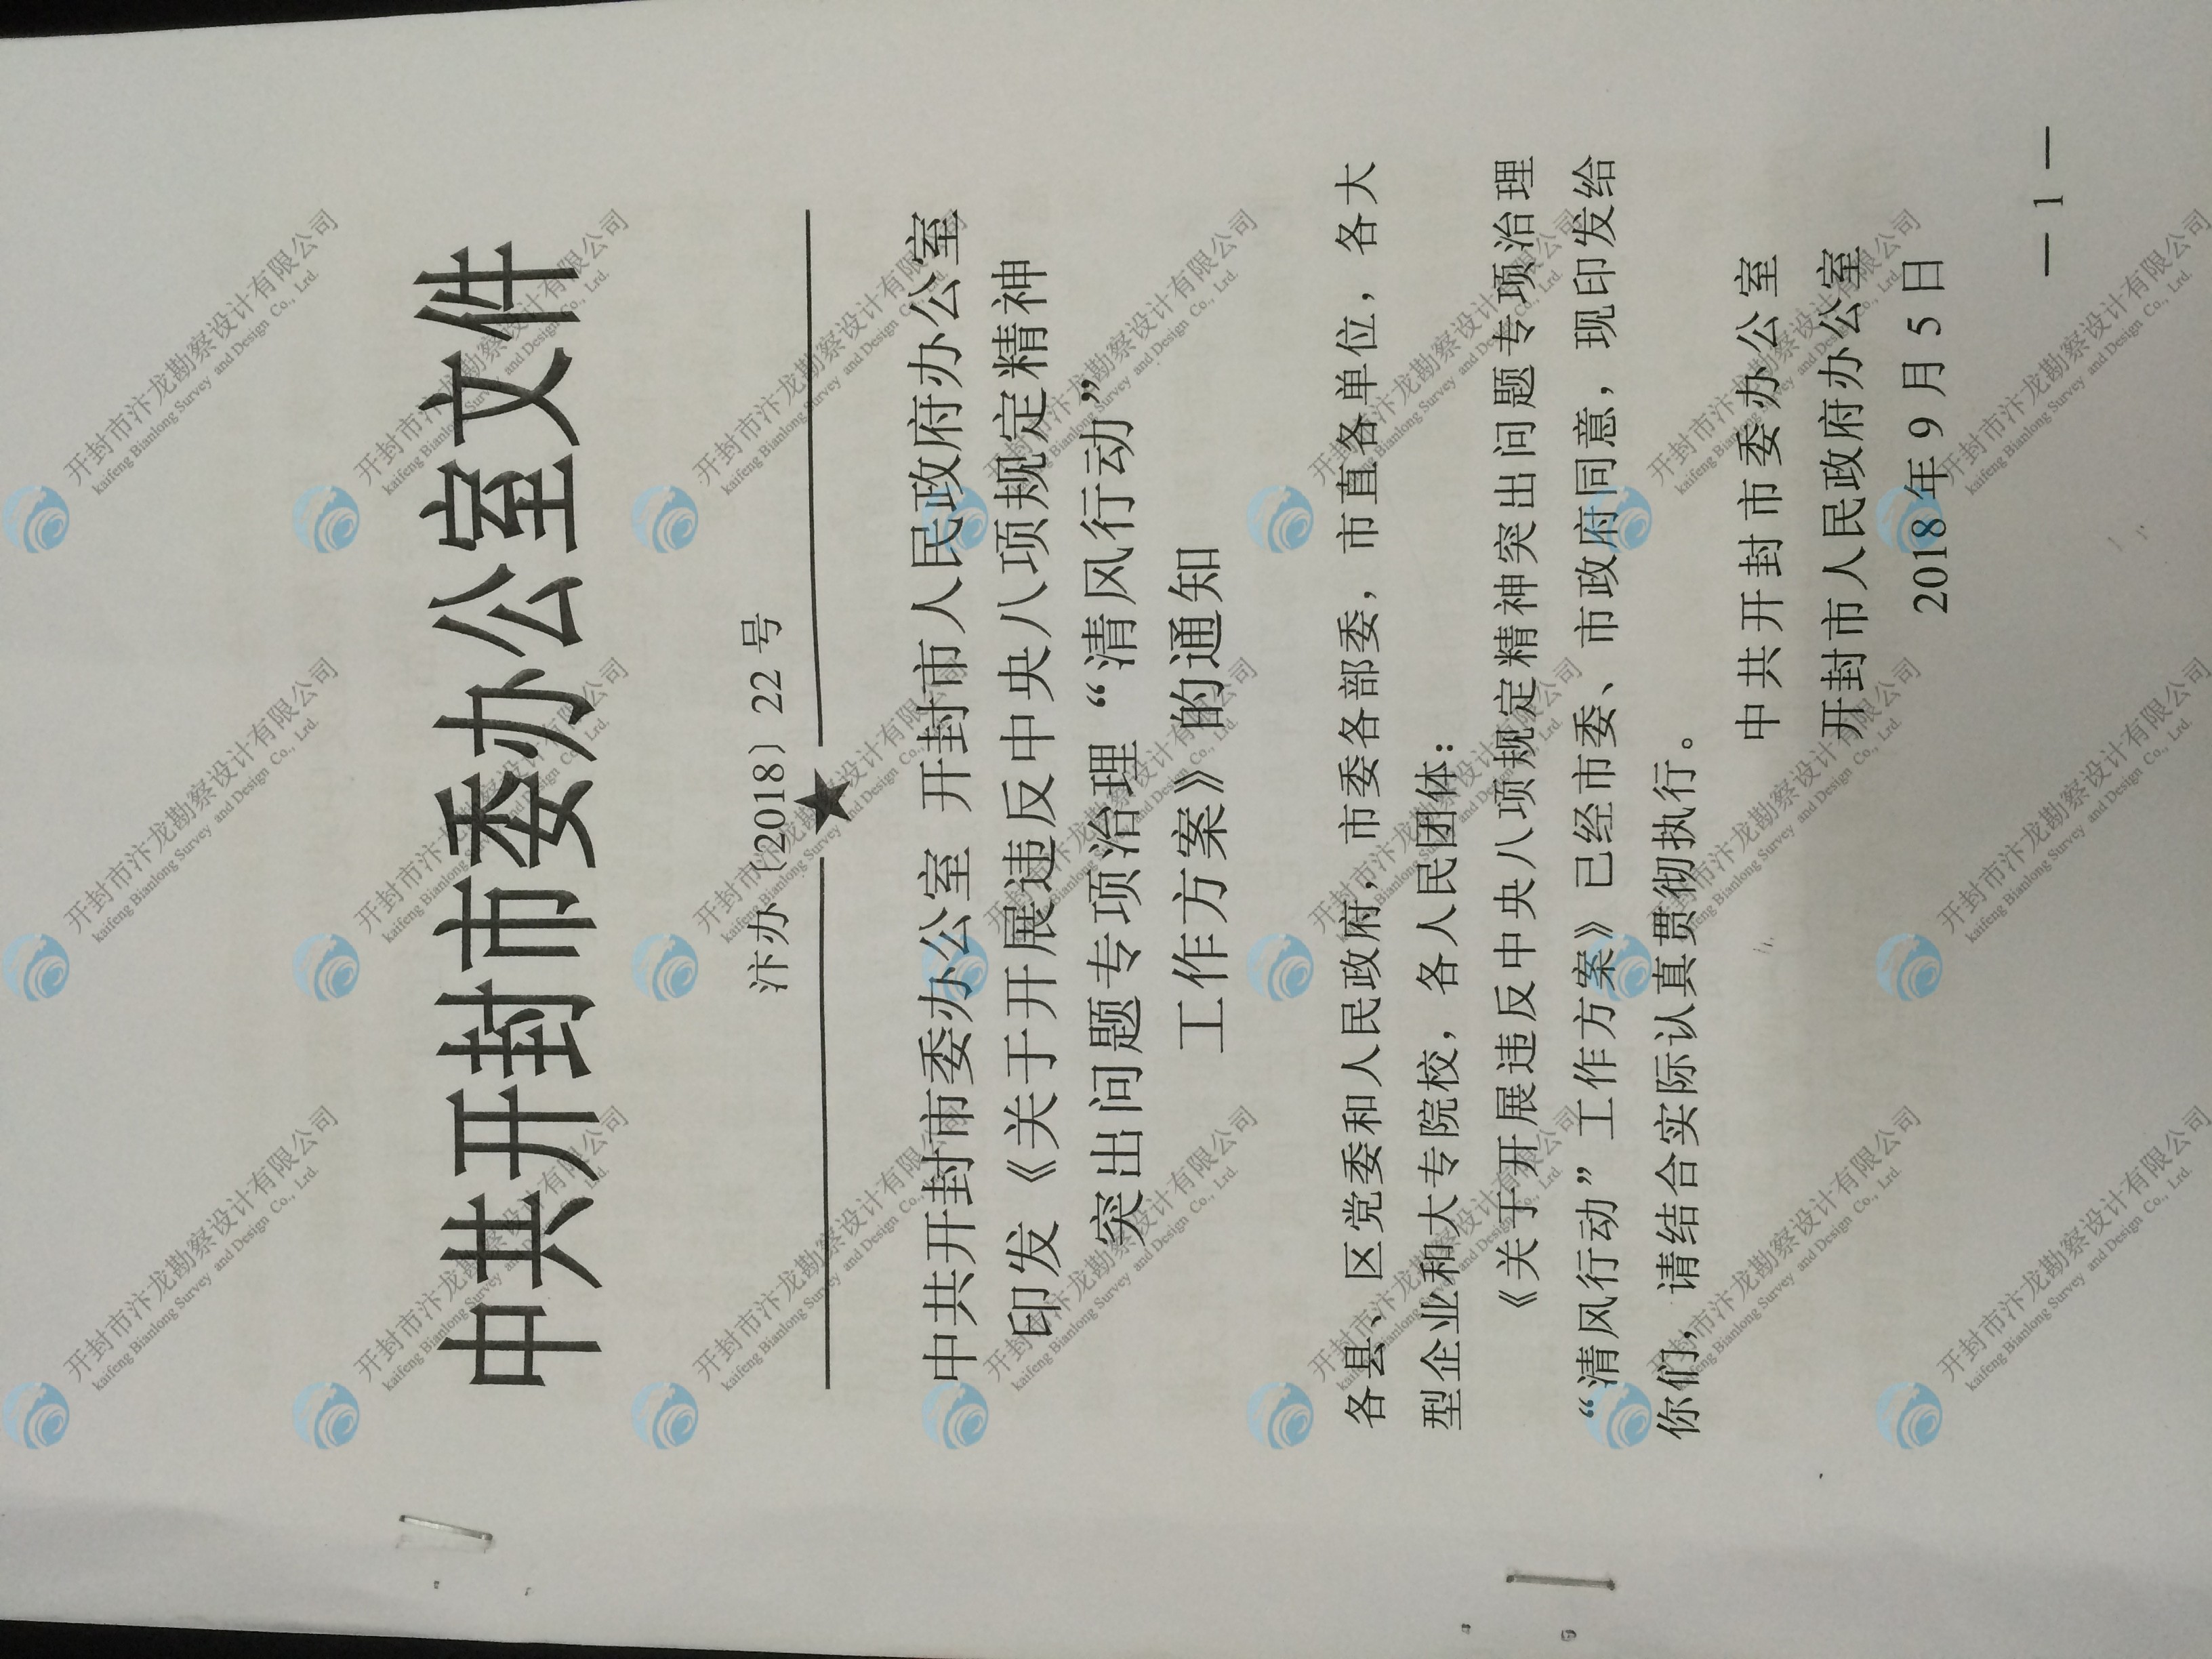 中共开封市委办公室文件
汴办〔2018〕22号
中共开封市委办公室 开封市人民政府办公室
印发《关于开展违反中央八项规定精神
突出问题专项治理“清风行动”
工作方案》的通知
各县、区党委和人民政府，市委各部委，市直各单位，各大
型企业和大专院校，各人民团体：
《关于开展违反中央八项规定精神突出问题专项治理
“清风行动”工作方案》已经市委、市政府同意，现印发给
你们，请结合实际认真贯彻执行。
中共开封市委办公室
开封市人民政府办公室
2018年9月5日
— 1 —
开封市汴龙勘察设计有限公司
kaifeng Bianlong Survey and Design Co., Ltd.